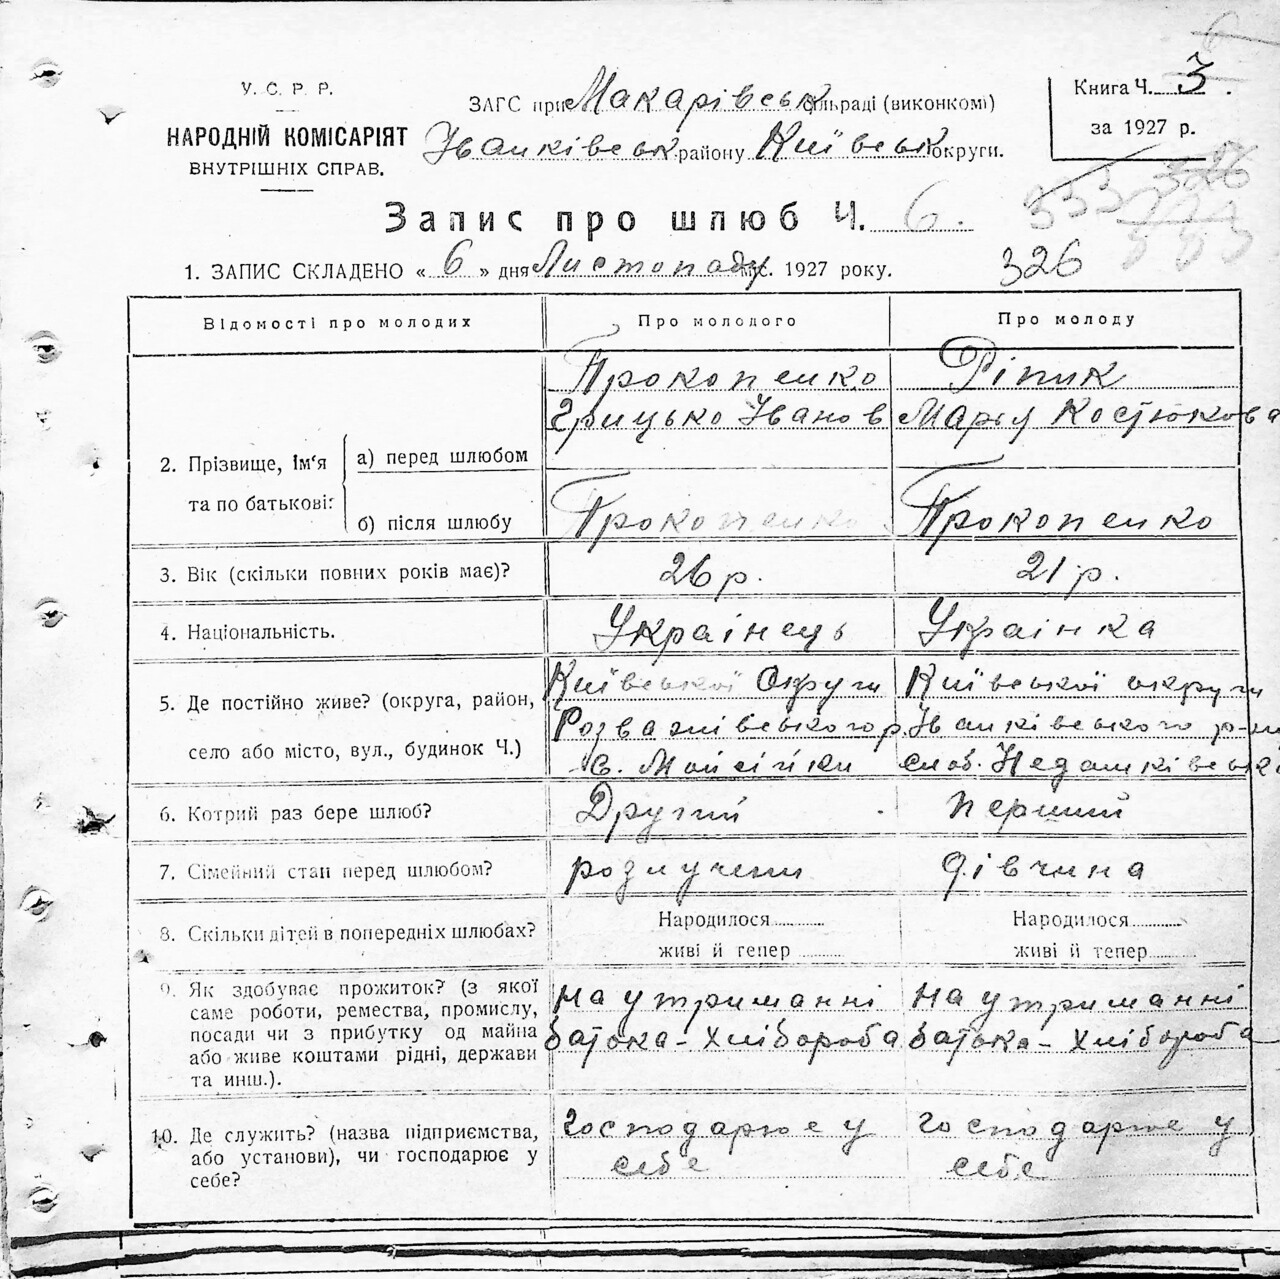 У. С. Р. Р.
НАРОДНІЙ КОМІСАРІЯТ
ВНУТРІШНІХ СПРАВ.
ЗАГС при Макарівськ сільраді (виконкомі)
Іванківськ району Київськ округи.
Книга Ч. 3.
за 1927 р.
Запис про шлюб Ч. 6.
326
1. ЗАПИС СКЛАДЕНО « 6 » дня Листопаду міс. 1927 року.
326
Відомості про молодих
Про молодого
Про молоду
2. Прізвище, Ім'я та по батькові:
а) перед шлюбом
Прокопенко
Грицько Іванов
Ріпик
Марья Костюкова
б) після шлюбу
Прокопенко
Прокопенко
3. Вік (скільки повних років має)?
26 р.
21 р.
4. Національність.
Украінець
Украінка
5. Де постійно живе? (округа, район,
село або місто, вул., будинок Ч.)
Київської Округи
Розважівського р.
с. Мойсійки
Київської округи
Іванківського р-ну
слоб.
6. Котрий раз бере шлюб?
Другий
перший
7. Сімейний стан перед шлюбом?
розлучени
дівчина
8. Скільки дітей в попередніх шлюбах?
Народилося
живі й тепер
Народилося
живі й тепер
9. Як здобуває прожиток? (з якої
саме роботи, ремества, промислу,
посади чи з прибутку од майна
або живе коштами рідні, держави
та инш.).
На утриманні
батока - хлібороба
На утриманні
батька - хлібороба
10. Де служить? (назва підприємства,
або установи), чи господарює у
себе?
Господарює у
себе
Господарює у
себе